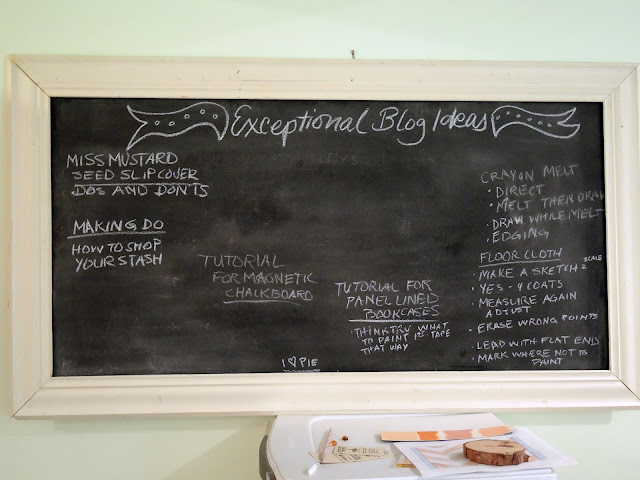 Exceptional Blog Ideas
MISS MUSTARD
SEED SLIPCOVER
. DOS AND DON'TS
MAKING DO
HOW TO SHOP
YOUR STASH
TUTORIAL
FOR MAGNETIC
CHALKBOARD
TUTORIAL FOR
PANEL LINED
BOOKCASES
• THINK TRU WHAT
TO PAINT 1ST TAPE
THAT WAY
I ♡ PIE
CRAYON MELT
• DIRECT
• MELT THEN DRAW
• DRAW WHILE MELT
• EDGING
FLOOR CLOTH
• MAKE A SKETCH 2 SCALE
• YES - 4 COATS
• MEASURE AGAIN
ADJUST
• ERASE WRONG POINTS
• LEAD WITH FLAT END
• MARK WHERE NOT TO
PAINT